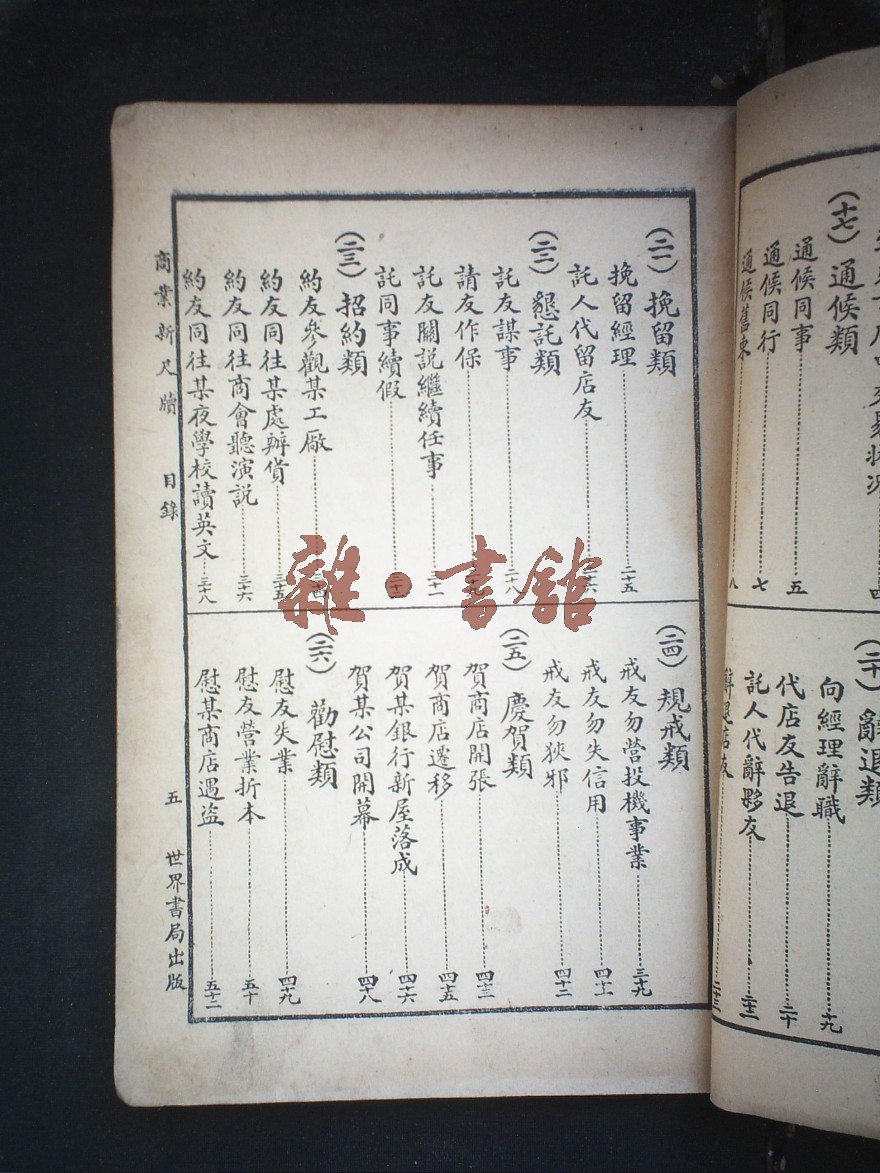 (十七)通候類
通候同事 五
通候同行 七
通候舊東 八
(二十)辭退類
向經理辭職 十九
代店友告退 二十
託人代辭夥友
(二一)挽留類
挽留經理 二十五
託人代留店友
(二二)懇託類
託友謀事 二十八
請友作保
託友關說繼續任事
託同事續假
(二三)招約類
約友參觀某工廠
約友同往某處辦貨 三十五
約友同往商會聽演說 三十六
約友同往某夜學校讀英文 三十八
(二四)規戒類
戒友勿營投機事業 三十九
戒友勿失信用 四十一
戒友勿狹邪 四十二
(二五)慶賀類
賀商店開張 四十三
賀商店遷移 四十五
賀某銀行新屋落成 四十六
賀某公司開幕 四十八
(二六)勸慰類
慰友失業 四十九
慰友營業折本 五十
慰某商店遇盜 五十二
商業新尺牘 目錄 五 世界書局出版
雜·書館